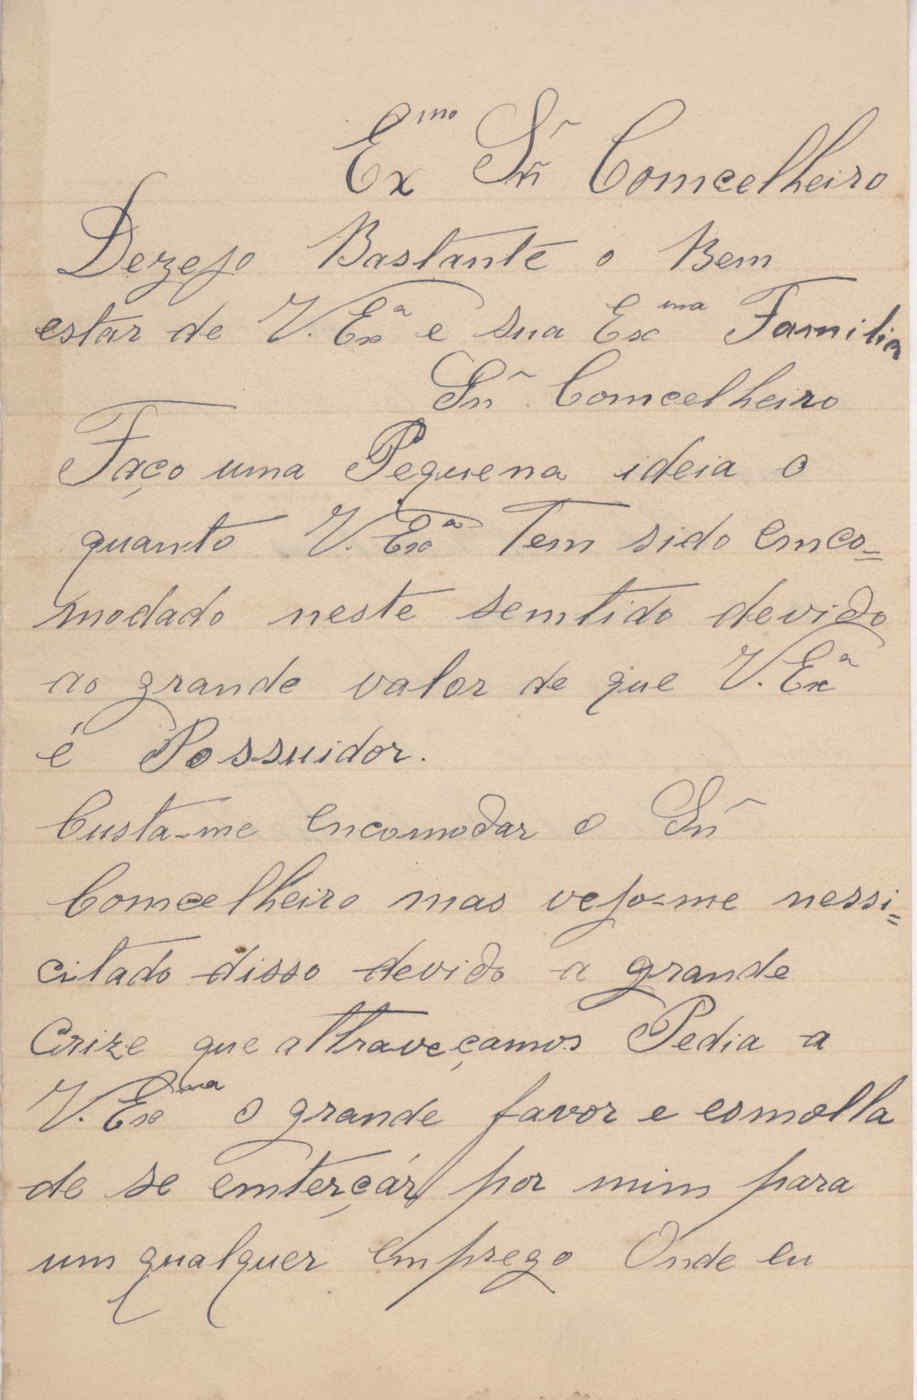 Exmo Snr Comcelheiro
Dezejo Bastante o Bem
estar de V. Exa e sua Exma Familia
Snr Comcelheiro
Faço uma Pequena ideia o
quanto V. Exa Tem sido emco=
modado neste semtido devido
ao grande valor de que V. Exa
é Possuidor.
Custa-me encomodar o Snr
Comcelheiro mas vejo=me nessi=
citado disso devido a grande
Crize que attraveçamos Pedia a
V. Exma o grande favor e esmolla
de se emterçár por mim para
um qualquer emprego Onde eu